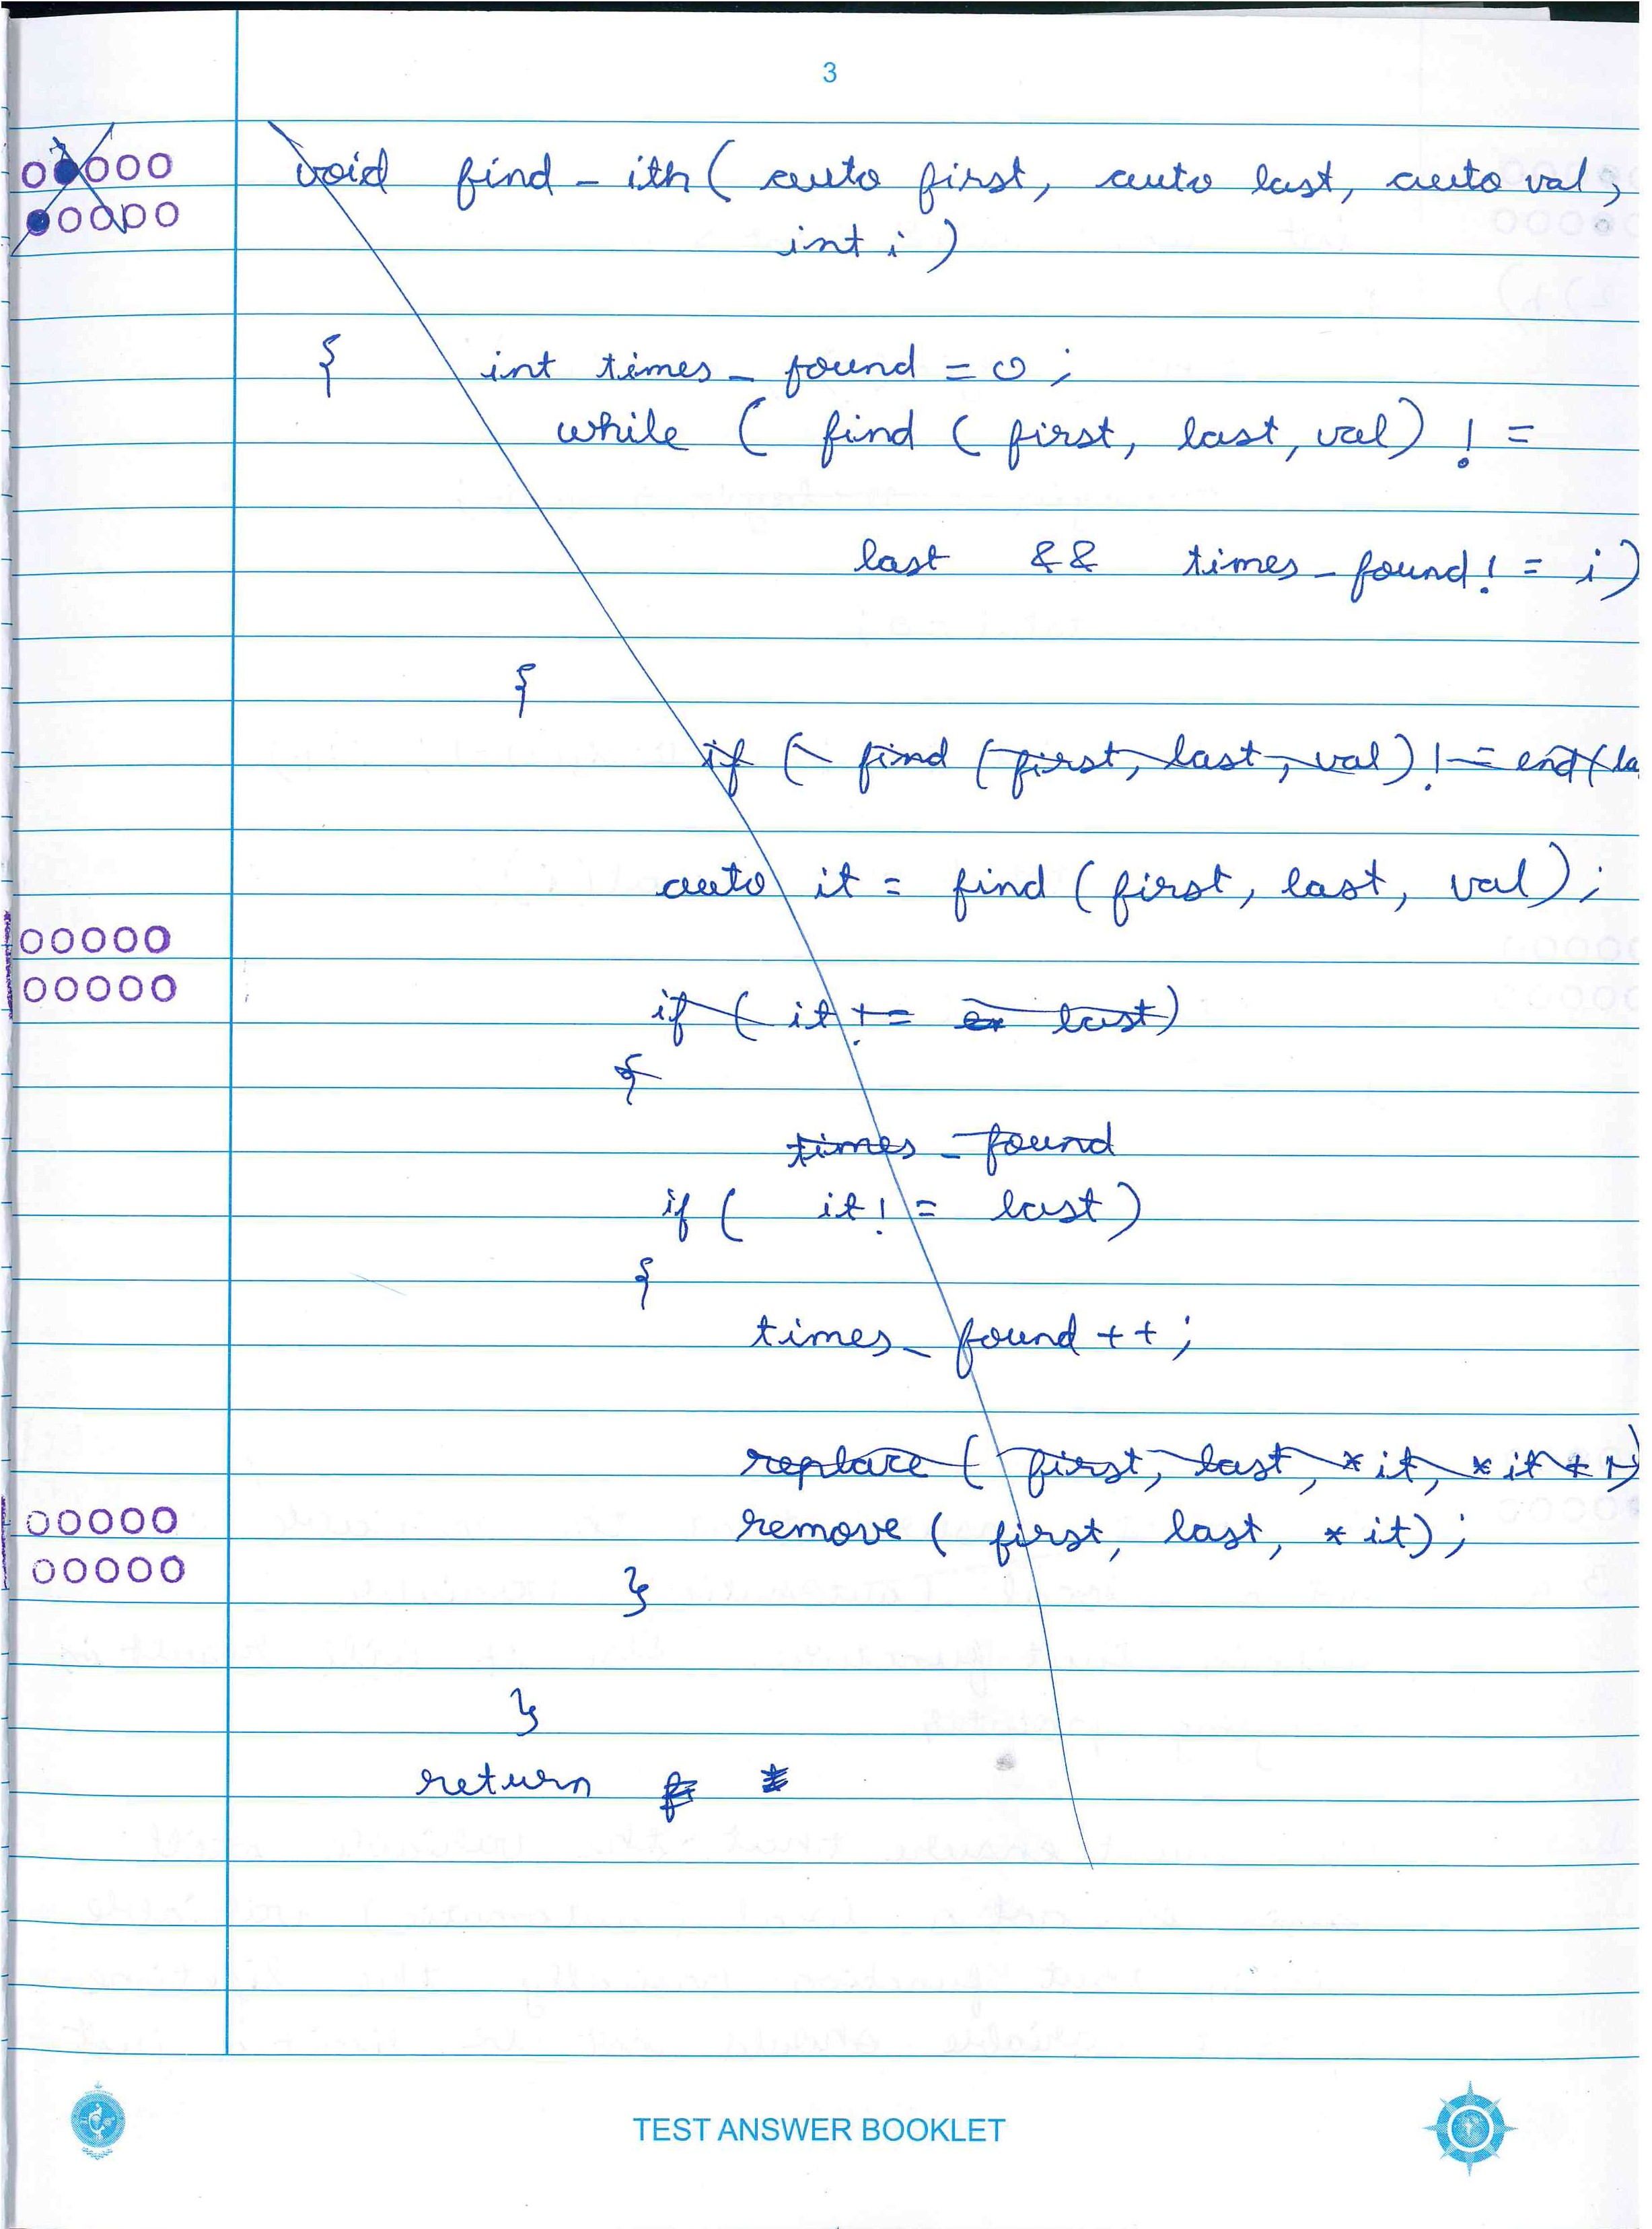 3
void find_ith(auto first, auto last, auto val,
int i)
{ int times_found = 0;
while ( find ( first, last, val) !=
last && times_found != i)
{
if ( find (first, last, val) != end(la
auto it = find (first, last, val);
if ( it != last)
{
times_found
if ( it != last)
{
times_found ++;
replace ( first, last, *it, *it + 1)
remove ( first, last, *it);
}
}
return
TEST ANSWER BOOKLET